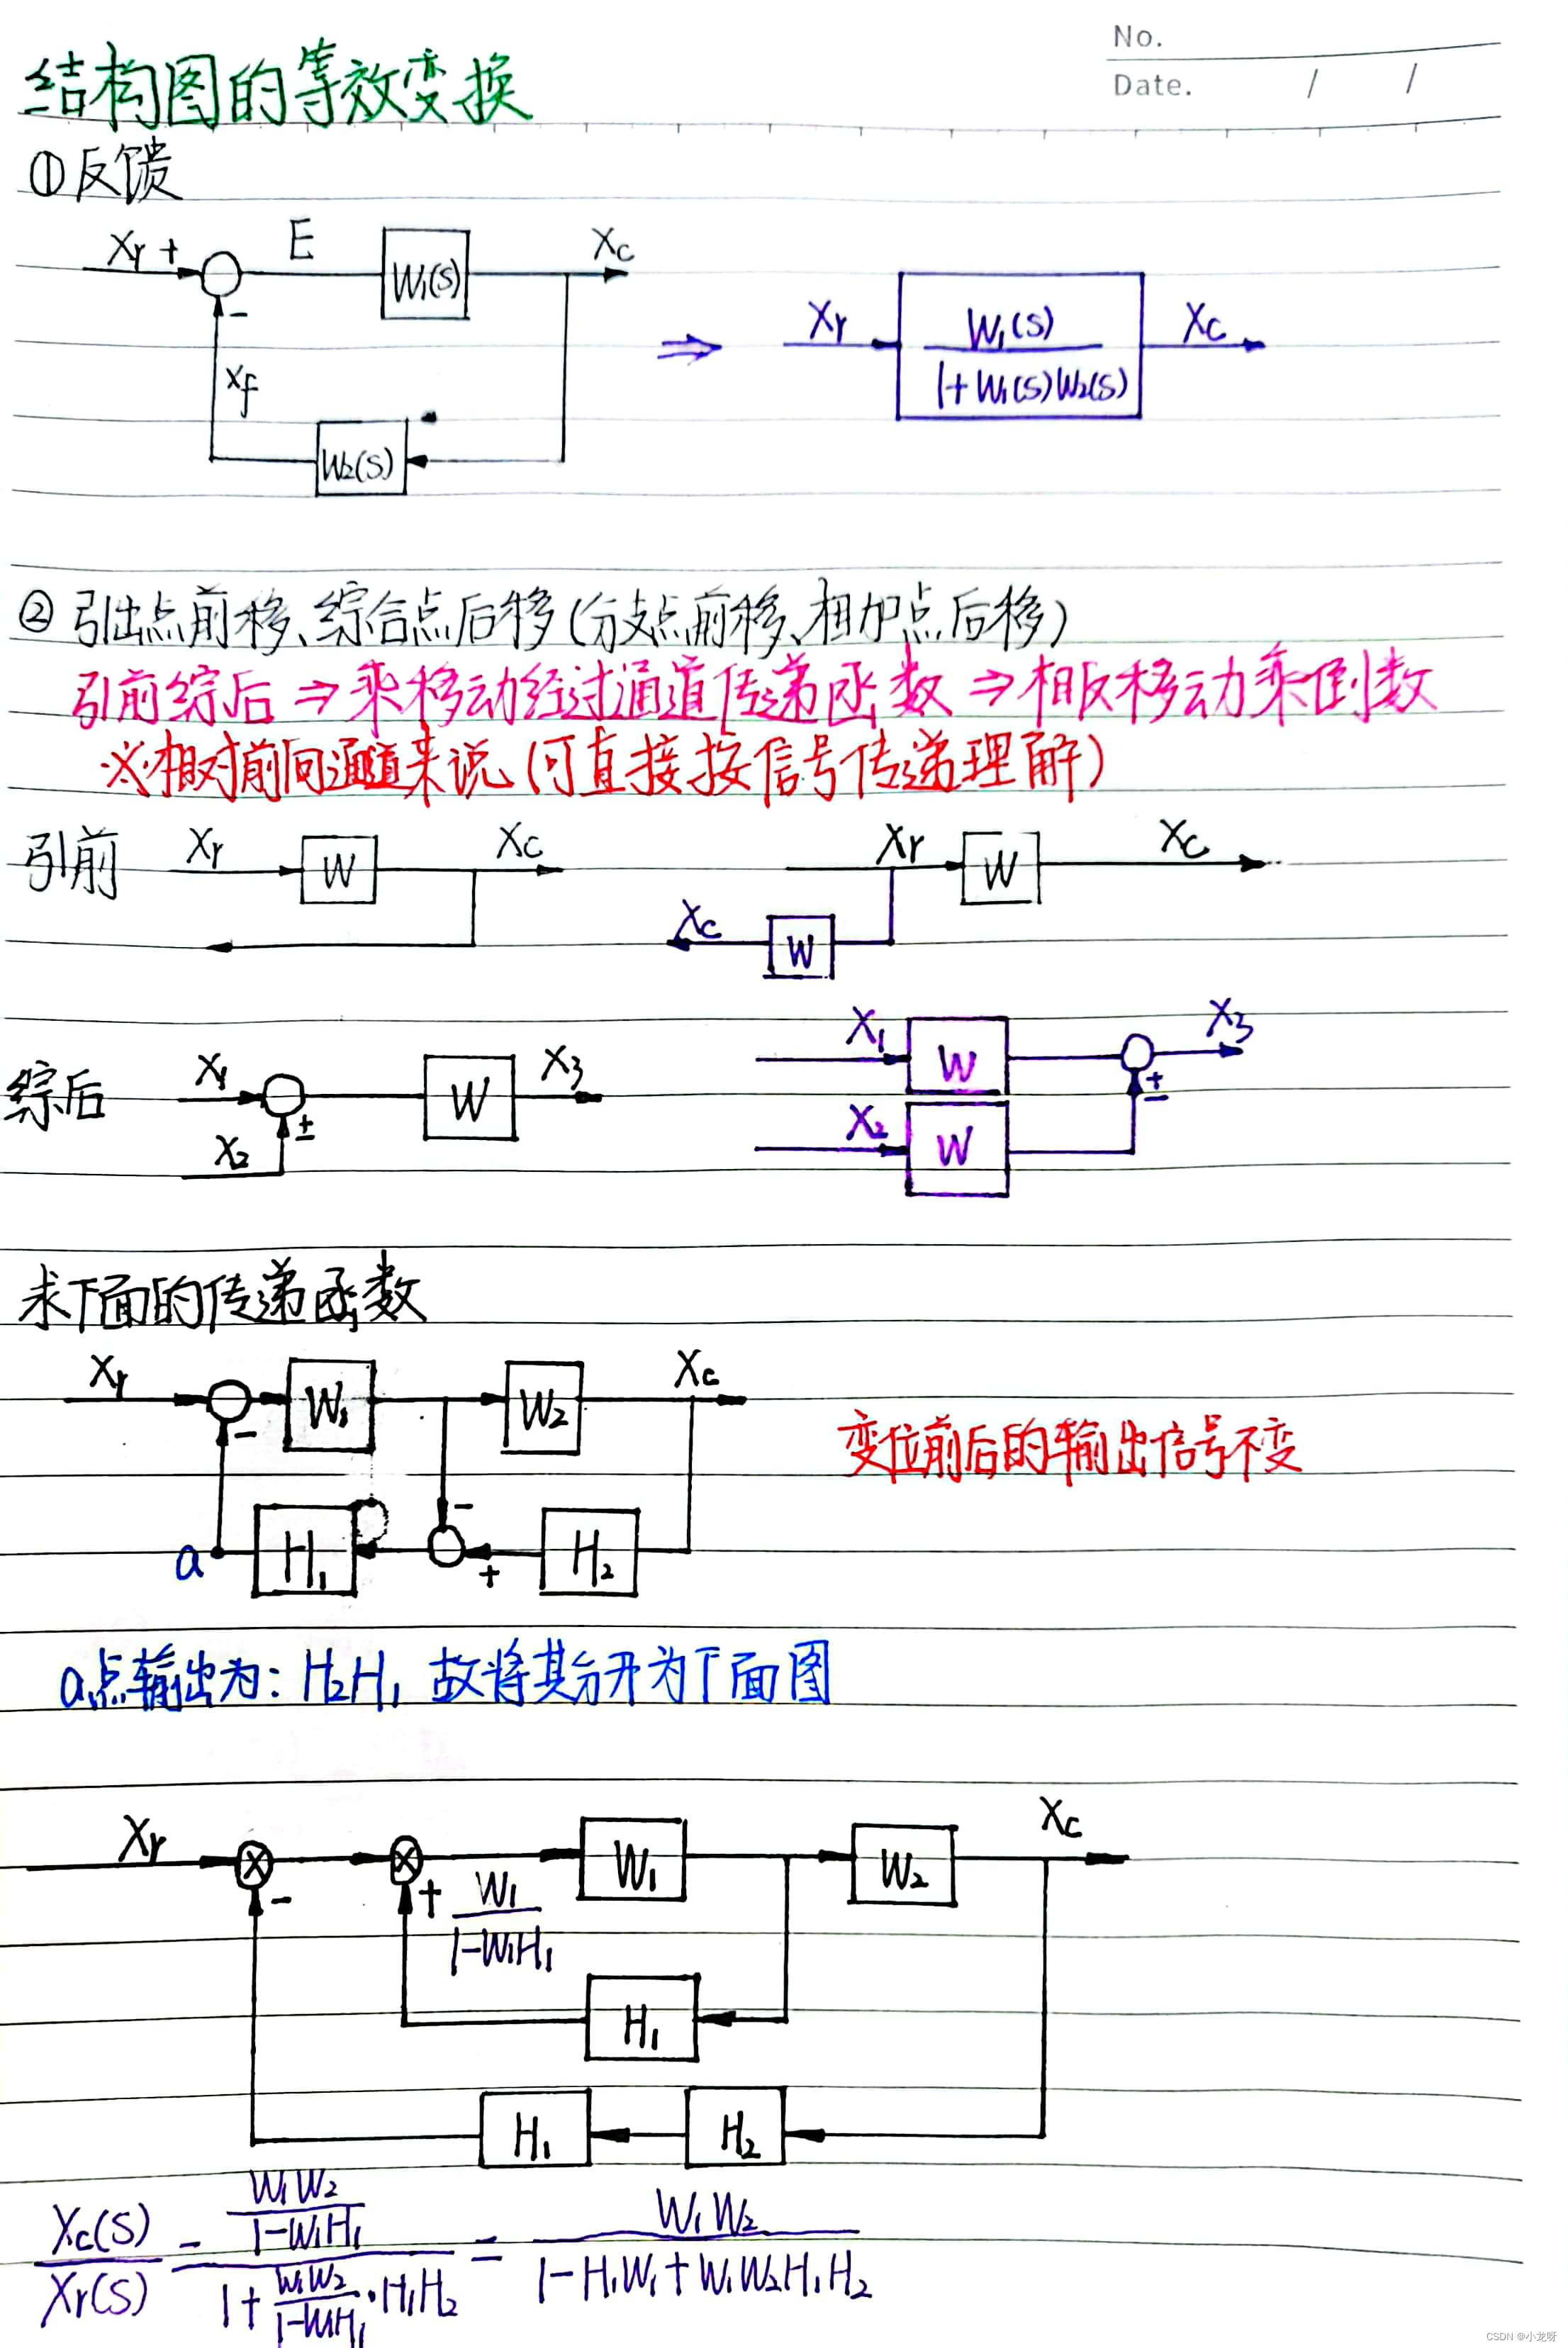 No.
Date. / /
结构图的等效变换
①反馈
Xr + E W₁(s) Xc
-
Xf
W₂(s)
⇒ Xr W₁(s) / 1+W₁(s)W₂(s) Xc
②引出点前移、综合点后移(分支点前移、相加点后移)
引前综后⇒乘移动经过通道传递函数⇒相反移动乘倒数
※相对前向通道来说(可直接按信号传递理解)
引前 Xr W Xc Xr W Xc
Xc W
综后 X₁ W X₃ X₁ W X₃
X₂ ± X₂ W ±
求下面的传递函数
Xr W₁ W₂ Xc
- -
变位前后的输出信号不变
a H₁ + H₂
a点输出为:H₂H₁ 故将其分开为下面图
Xr W₁ W₂ Xc
- + W₁ / 1-W₁H₁
H₁
H₁ H₂
Xc(s) / Xr(s) = (W₁W₂ / 1-W₁H₁) / (1+ W₁W₂ / 1-W₁H₁ · H₁H₂) = W₁W₂ / 1-H₁W₁+W₁W₂H₁H₂
CSDN @小龙呀